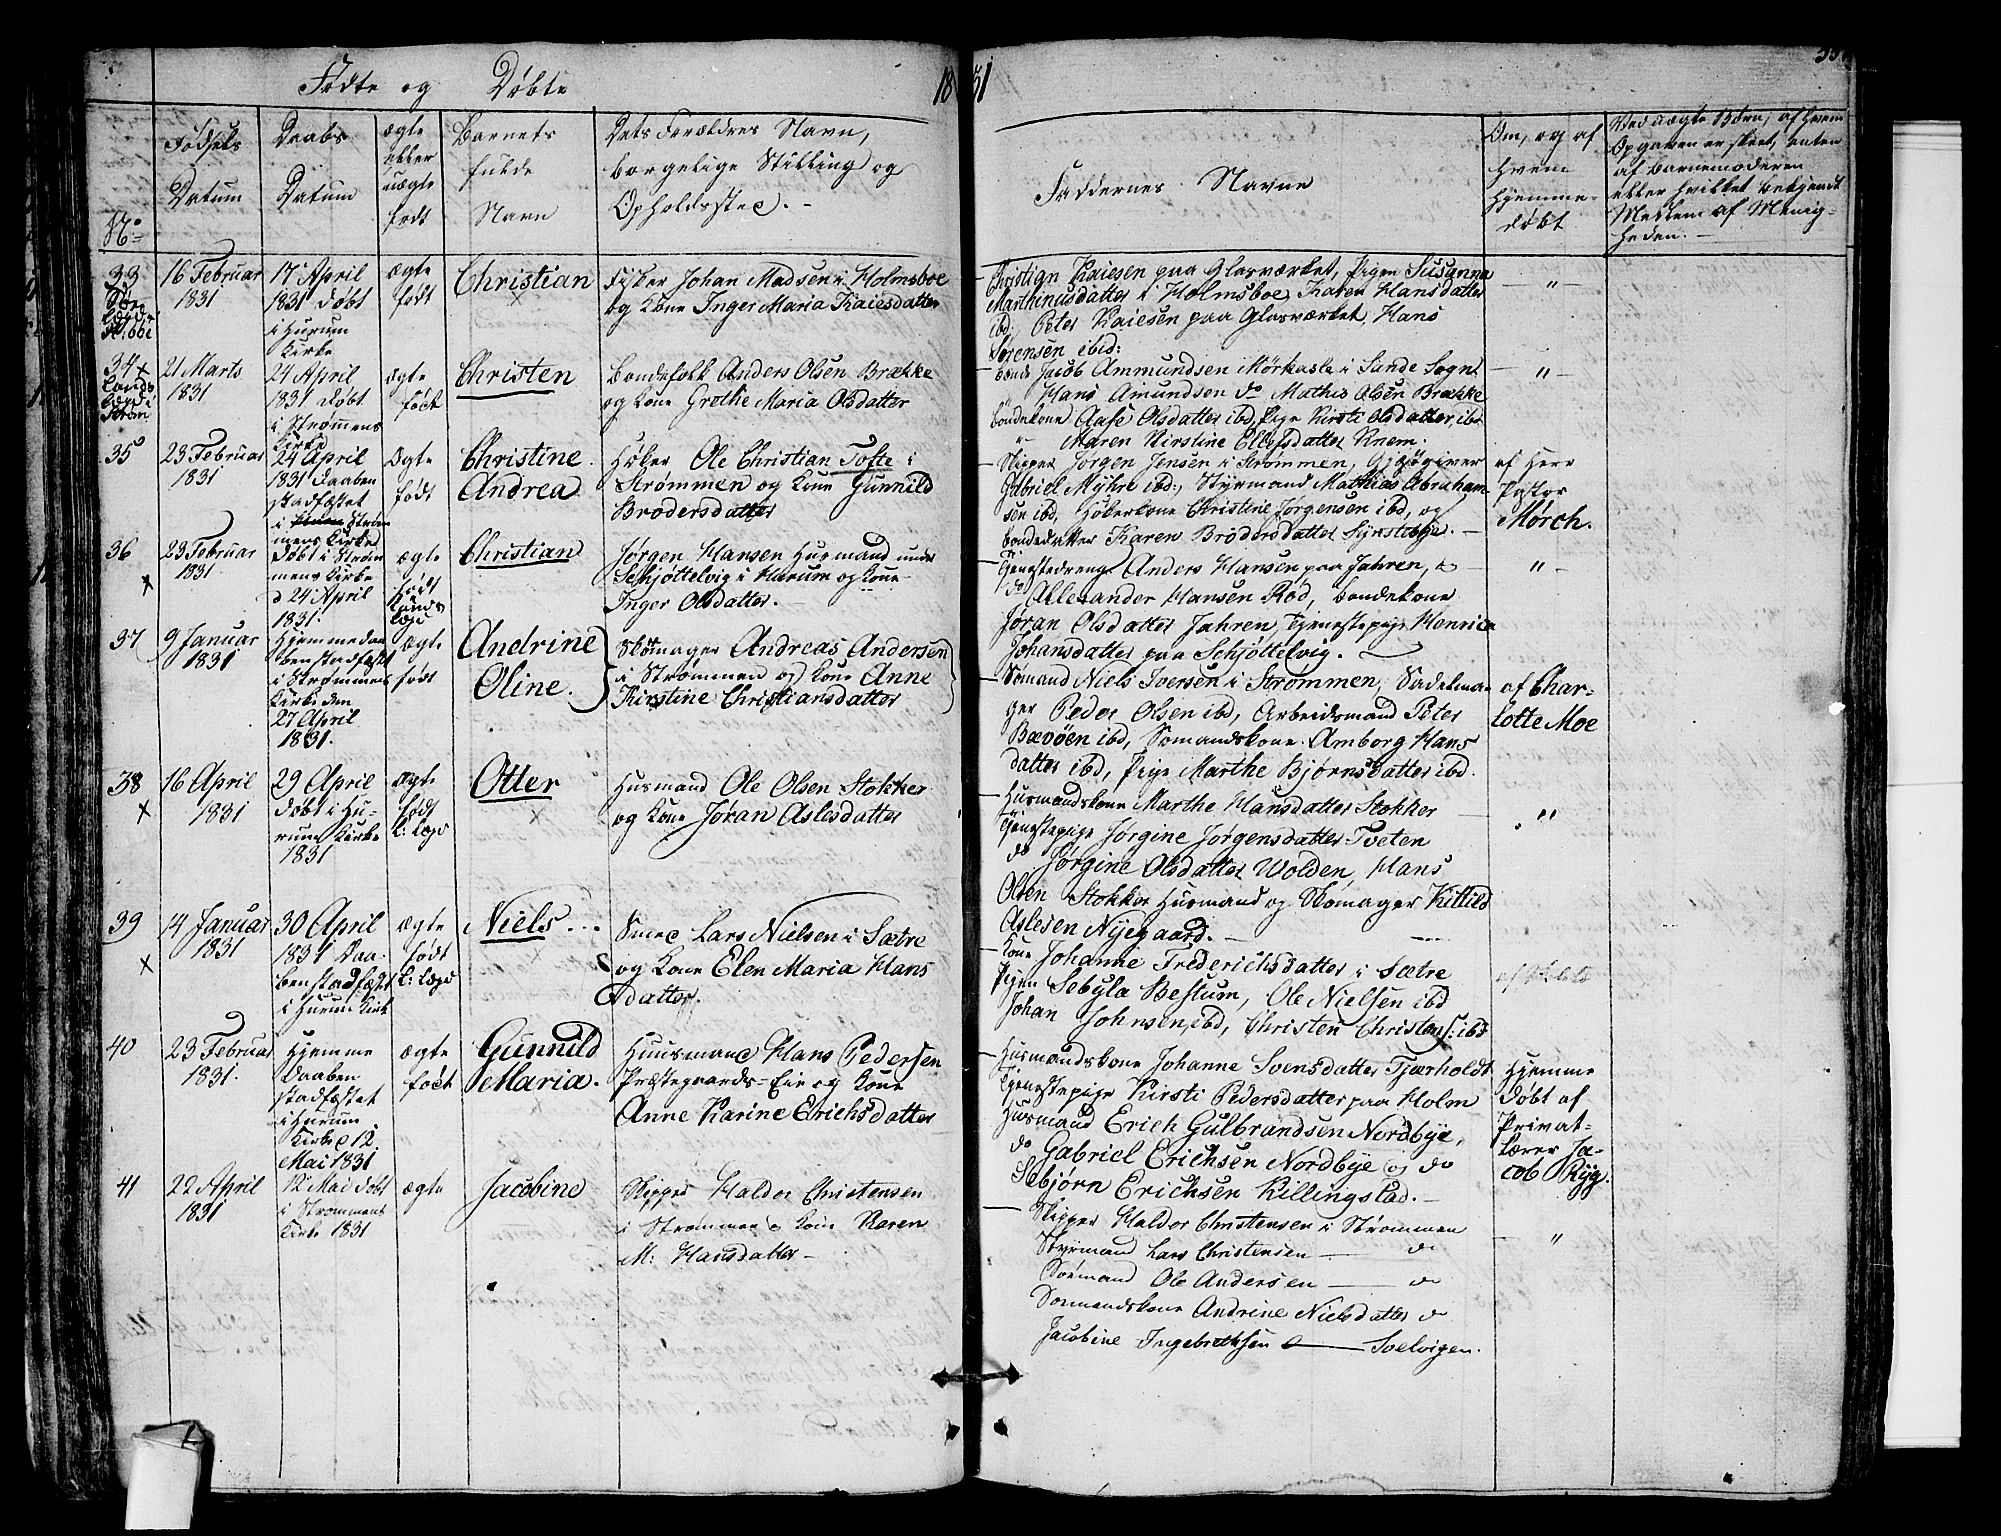 Fødte og Døbte 1831
No
Fødsels Datum
Daabs Datum
ægte eller uægte født
Barnets fulde Navn
Dets Forældres Navn, borgelige Stilling og Opholdssted.
Faddernes Navne
Om, og af hvem hjemmedøbt
Ved uægte Børn, af hvem Opgaven er skeet, enten af Barnemoderen eller hvilket bekjendt Medlem af Menigheden.
33
16 Februar
1831
17 April
1831 døbt
i Hurum
Kirke
ægte
født
Christian
Fisker Johan Madsen i Holmsboe
og Kone Inger Maria Kaiesdatter
Christian Kaiesen paa Glasværket, Pigen Susanna
Marthinusdatter i Holmsboe, Karen Hansdatter
ibd: Peter Kaiesen paa Glasværket, Hans
Sørensen ibid:
"
34
21 Marts
1831
24 April
1831 døbt
i Strømmens
Kirke
ægte
født
Christen
Bondefolk Anders Olsen Brække
og Kone Grethe Maria Olsdatter
Bonde Jacob Ammundsen Mørkasle i Sande Sogn
Hans Amundsen do Mathis Olsen Brække
Bondekone Aase Olsdatter ibd, Pige Kirsti Olsdatter, ibd
Maren Kirstine Ellefsdatter Knem.
"
35
23 Februar
1831
24 April
1831 Daaben
stadfæstet
i Strøm
mens Kirke
Ægte
født
Christine
Andrea
Høker Ole Christian Tofte i
Strømmen og Kone Gunnild
Brodersdatter
Skipper Jørgen Jensen i Strømmen, Gjæstgiver
Gabriel Myhre ibd:, Styrmand Mathias Abraham-
sen ibd, Høkerkone Christine Jørgensen ibd, og
Bondedatter Karen Brodersdatter
af Herr
Pastor
Mørch.
36
23 Februar
1831
Døbt i Strøm
mens Kirke
d 24 April
1831.
ægte
født
Lands
Lægd
Christian
Jørgen Hansen Husmand under
Schjøttelvig i Hurum og Kone
Inger Olsdatter.
Tjenestedreng Anders Hansen paa Jahren,
do Allexander Hansen Rød, Bondekone
Jøran Olsdatter Jahren, Tjenestepige Henrica
Johansdatter paa Schjøttelvig.
"
37
9 Januar
1831
Hjemmedaa
ben stadfæst
i Strømmens
Kirke den
27 April
1831.
ægte
født
Andrine
Oline.
Skomager Andreas Andersen
i Strømmen og Kone Anne
Kirstine Christiansdatter
Sømand Niels Iversen i Strømmen, Sadelma-
ger Peder Olsen ibd, Arbeidsmand Peter
Bævøen ibd, Sømandskone Amborg Hans
datter ibd, Pige Marthe Bjørnsdatter ibd.
af Char-
lotte Moe
38
16 April
1831
29 April
døbt i Hu-
rums Kirke
1831
ægte
født
L: Lægd
Otter
Husmand Ole Olsen Stokker
og Kone Jøran Aslesdatter
Husmandskone Marthe Hansdatter Stokker
Tjenestepige Jørgine Jørgensdatter Tveten
do Jørgine Olsdatter Wolden, Hans
Olsen Stokker Husmand og Skomager Kittild
Aslesen Nyegaard.
"
39
14 Januar
1831
30 April
1831 Daa-
ben stadfæstet
i Hurum Kirk
ægte
født
L: Lægd
Niels
Smed Lars Nielsen i Sætre
og Kone Elen Maria Hans
datter.
Kone Johanne Frederichsdatter i Sætre
Pigen Sebyla Bestum, Ole Nielsen ibd
Johan Johnsen, ibd, Christen Christens: ibd
40
23 Februar
1831.
Hjemme
Daaben
stadfæstet
i Hurum
Kirke d 12
Mai 1831
ægte
født
Gunnild
Maria.
Huusmand Hans Pedersen
Præstegaards-Eie og Kone
Anne Karine Erichsdatter
Husmandskone Johanne Svensdatter Tjærholdt
Tjenestepige Kirsti Pedersdatter paa Holm
Husmand Erich Gulbrandsen Nordbye,
do Gabriel Erichsen Nordbye og do
Sebjørn Erichsen Killingstad.
Hjemme
døbt af
Privat-
lærer Ja-
cob Ryg.
41
22 April
1831
12 Mai døbt
i Strømmens
Kirke 1831
ægte
Jacobine
Skipper Haldor Christensen
i Strømmen & Kone Karen
M: Hansdatter
Skipper Haldor Christensen i Strømmen
Styrmand Lars Christensen do
Sømand Ole Andersen do
Sømandskone Andrine Nielsdatter do
Jacobine Ingebrethsen Soelvigen.
"